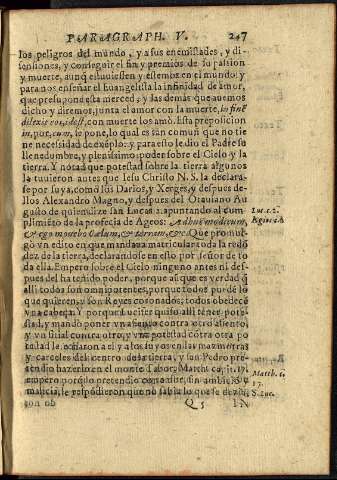 PARAGRAPH. V. 247
los peligros del mundo, y a sus enemistades, y di-
sensiones, y conseguir el fin y premios de su passion
y muerte, aunq̃ estuuiessen y estemos en el mundo: y
para nos enseñar el Euangelista la infinidad de amor,
que presupone esta merced, y las demás que auemos
dicho y diremos, junta el amor con la muerte, in finẽ
dilexit eos, idest, con muerte los amò. Esta preposicion
in, por, cum, se pone, lo qual es tan comun que no tie
ne necessidad de exẽplo: y para esto le dio el Padre su
lleno dumbre, y plenissimo poder sobre el Cielo y la
tierra. Y notad que potestad sobre la tierra algunos
la tuuieron antes que Iesu Christo N. S. la declara-
se por suya, como son Darios, y Xerges, y despues de-
llos Alexandro Magno, y despues del Otauiano Au
gusto de quien dize san Lucas 2. apuntando al cum-
plimiẽto de la profecia de Ageos: Adhuc modicum,
& ego mouebo cælum, & terram, &c. Que promul-
gò vn edito en que mandaua matricular toda la redõ
dez de la tierra, declarandose en esto por señor de to
da ella. Empero sobre el Cielo ninguno antes ni des-
pues del ha tenido poder, porque aũque es verdad q̃
alli todos son omnipotentes, porque todos puedẽ lo
que quieren, y son Reyes coronados; todos obedecẽ
vna cabeça. Y porque Lucifer quiso alli tener potes
tad, y mandò poner vn asiento contra otro asiento,
y vn sitial contra otro, y vna potestad cõtra otra po
testad le echaron a el y a los suyos en las mazmorras
y carceles del centro de la tierra, y san Pedro pre-
tendio hazerlo en el monte Tabor, Matth. ca. it. 17.
empero porque pretendio con amor, sin ambicion y
malicia, le respõdieron que no sabia lo que se dezia:
non ob Q 5 IN
Luc. c. 2.
Matth. c.
17.
S. Luc.